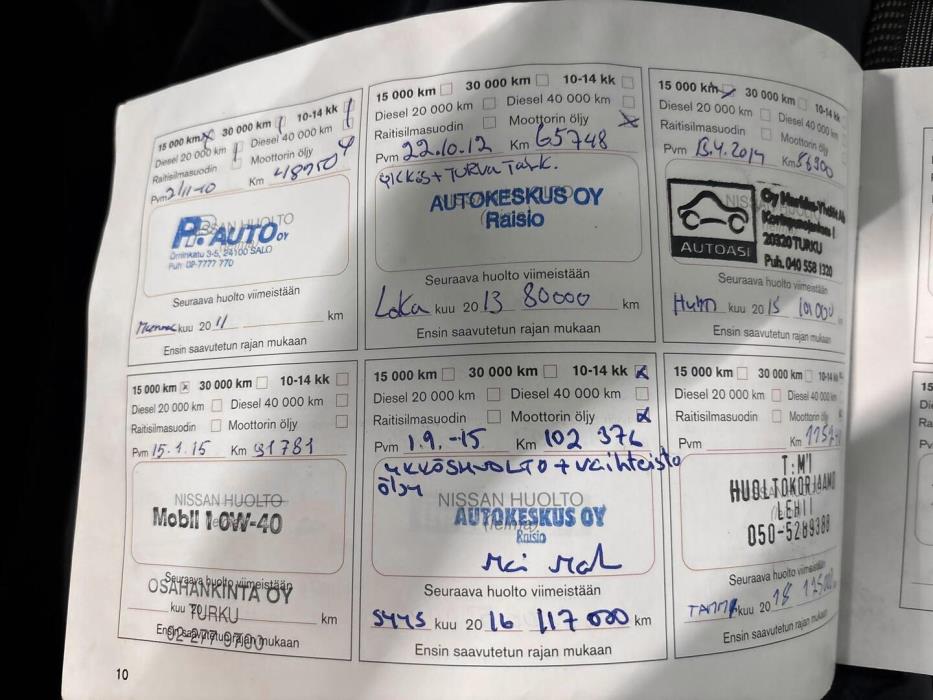 15 000 km 30 000 km 10-14 kk
Diesel 20 000 km Diesel 40 000 km
Raitisilmasuodin Moottorin öljy
Pvm 2/11-10 Km
P. AUTO OY
NISSAN HUOLTO
Örninkatu 3-5, 24100 SALO
Puh. 02-7777 770
Seuraava huolto viimeistään
kuu 2011 km
Ensin saavutetun rajan mukaan
15 000 km 30 000 km 10-14 kk
Diesel 20 000 km Diesel 40 000 km
Raitisilmasuodin Moottorin öljy
Pvm 22.10.12 Km 65748
AUTOKESKUS OY
Raisio
Seuraava huolto viimeistään
Loka kuu 2013 80000 km
Ensin saavutetun rajan mukaan
15 000 km 30 000 km 10-14
Diesel 20 000 km Diesel 40 000
Raitisilmasuodin Moottorin öljy
Pvm .4.2014 Km 86900
NISSAN HUOLTO
AUTOASI
20320 TURKU
Puh. 040 558 1320
Seuraava huolto viimeistään
Huhti kuu 2015 101000
Ensin saavutetun rajan mukaan
15 000 km 30 000 km 10-14 kk
Diesel 20 000 km Diesel 40 000 km
Raitisilmasuodin Moottorin öljy
Pvm 15.1.15 Km 91781
NISSAN HUOLTO
Mobil 1 0W-40
Seuraava huolto viimeistään
OSAHANKINTA OY
kuu 20 km
TURKU
Ensin saavutetun rajan mukaan
02-277 9700
15 000 km 30 000 km 10-14 kk
Diesel 20 000 km Diesel 40 000 km
Raitisilmasuodin Moottorin öljy
Pvm 1.9.-15 Km 102 376
YKKÖSHUOLTO + vaihteisto
öljy
NISSAN HUOLTO
AUTOKESKUS OY
Raisio
Seuraava huolto viimeistään
SYYS kuu 2016 117 000 km
Ensin saavutetun rajan mukaan
15 000 km 30 000 km 10-14 kk
Diesel 20 000 km Diesel 40 000
Raitisilmasuodin Moottorin öljy
Pvm Km
T:MI
HUOLTOKORJAAMO
LEHTI
050-5289388
Seuraava huolto viimeistään
TAMMI kuu 2018
Ensin saavutetun rajan mukaan
10